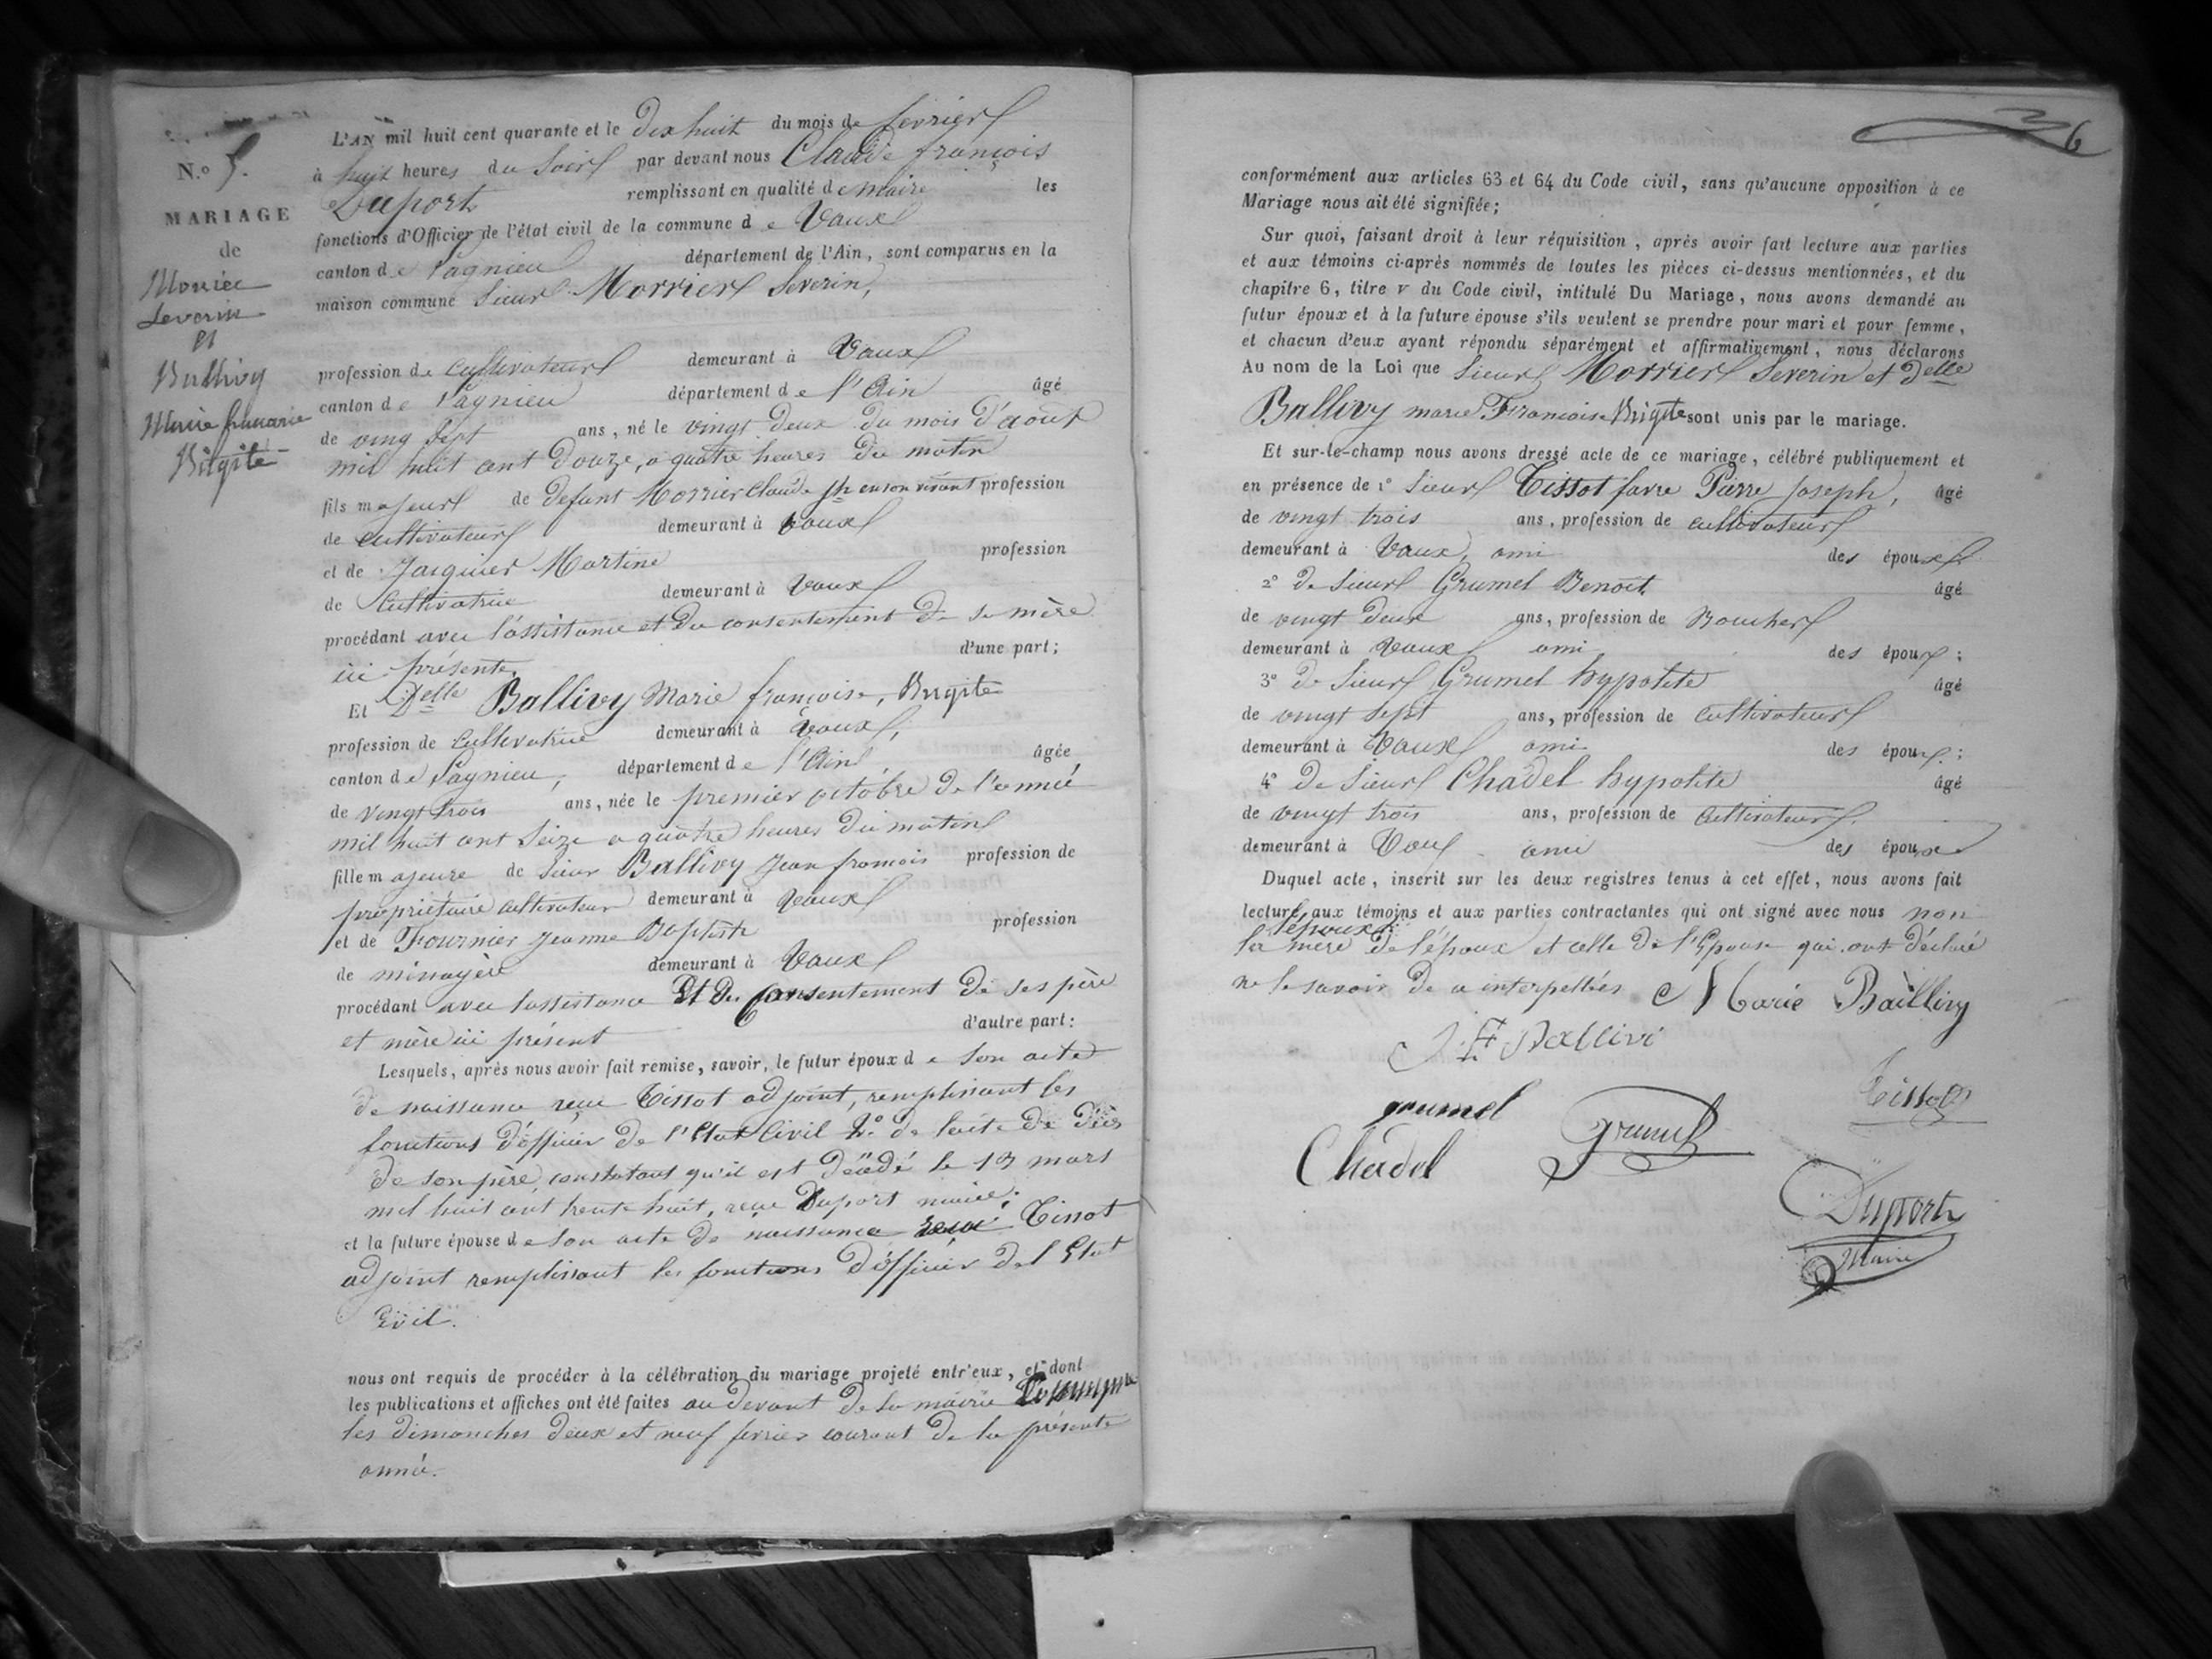 N.o 5.
MARIAGE
de
Morier
Severin
et
Ballivy
Marie francoise
Brigite
L'AN mil huit cent quarante et le dix huit du mois de fevrier
à huit heures du Soir par devant nous Claude françois
Duport remplissant en qualité de maire les
fonctions d'Officier de l'état civil de la commune de Vaux
canton de Lagnieu département de l'Ain, sont comparus en la
maison commune Sieur Morrier Severin,
profession de cultivateur demeurant à Vaux
canton de Lagnieu département de l'Ain âgé
de ving sept ans, né le vingt deux du mois d'aout
mil huit cent douze, a quatre heures du matin
fils majeur de defunt Morrier Claude jh en son vivant profession
de cultivateur demeurant à vaux
et de Jarquier Martine profession
de Cultivatrice demeurant à Vaux
procédant avec l'assistance et du consentement de se mère
ici présente, d'une part;
Et Delle Ballivy Marie françoise, Brigite
profession de cultivatrice demeurant à Vaux,
canton de Lagnieu, département de l'Ain âgée
de vingt trois ans, née le premier octobre de l'année
mil huit cent seize a quatre heures du matin
fille majeure de sieur Ballivy Jean francois profession de
propriétaire cultivateur demeurant à Vaux
et de Fournier Jeanne Baptiste profession
de ménagère demeurant à Vaux
procédant avec lassistance Et Du Consentement de ses père
et mère ici présent d'autre part:
Lesquels, après nous avoir fait remise, savoir, le futur époux de son acte
de naissance reçu Tissot adjoint, remplissant les
fonctions d'officier de l'Etat Civil 2o de lacte de décès
de son père, constatant qu'il est décédé le 13 mars
mil huit cent trente huit, reçu Duport maire;
et la future épouse de son acte de naissance reçu Tissot
adjoint remplissant les fonctions d'officier de l Etat
Civil.
nous ont requis de procéder à la célébration du mariage projeté entr'eux, et dont
les publications et affiches ont été faites au devant de la mairie
les dimanches deux et neuf fevrier courant de la présente
année.
6
conformément aux articles 63 et 64 du Code civil, sans qu'aucune opposition à ce
Mariage nous ait été signifiée;
Sur quoi, faisant droit à leur réquisition, après avoir fait lecture aux parties
et aux témoins ci-après nommés de toutes les pièces ci-dessus mentionnées, et du
chapitre 6, titre v du Code civil, intitulé Du Mariage, nous avons demandé au
futur époux et à la future épouse s'ils veulent se prendre pour mari et pour femme,
et chacun d'eux ayant répondu séparément et affirmativement, nous déclarons
Au nom de la Loi que Sieur Morrier Severin et Delle
Ballivy marie Francoise Brigite sont unis par le mariage.
Et sur-le-champ nous avons dressé acte de ce mariage, célébré publiquement et
en présence de 1o Sieur Tissot favre Pierre Joseph, âgé
de vingt trois ans, profession de cultivateur
demeurant à Vaux, ami des époux
2o de Sieur Grumel Benoit âgé
de vingt deux ans, profession de Boucher
demeurant à Vaux ami des époux;
3o de Sieur Grumel hypolite âgé
de vingt sept ans, profession de Cultivateur
demeurant à Vaux ami des époux;
4o de Sieur Chadel hypolite âgé
de vingt trois ans, profession de Cultivateur.
demeurant à Vaux ami des époux
Duquel acte, inscrit sur les deux registres tenus à cet effet, nous avons fait
lecture aux témoins et aux parties contractantes qui ont signé avec nous non
l'époux
la mère de l'époux et celle de l'Epouse qui ont déclaré
ne le savoir de ce interpellées Marie Baillivy
J. F Ballivi
Tissot
grumel
Grumel
Chadel
Duport
Maire